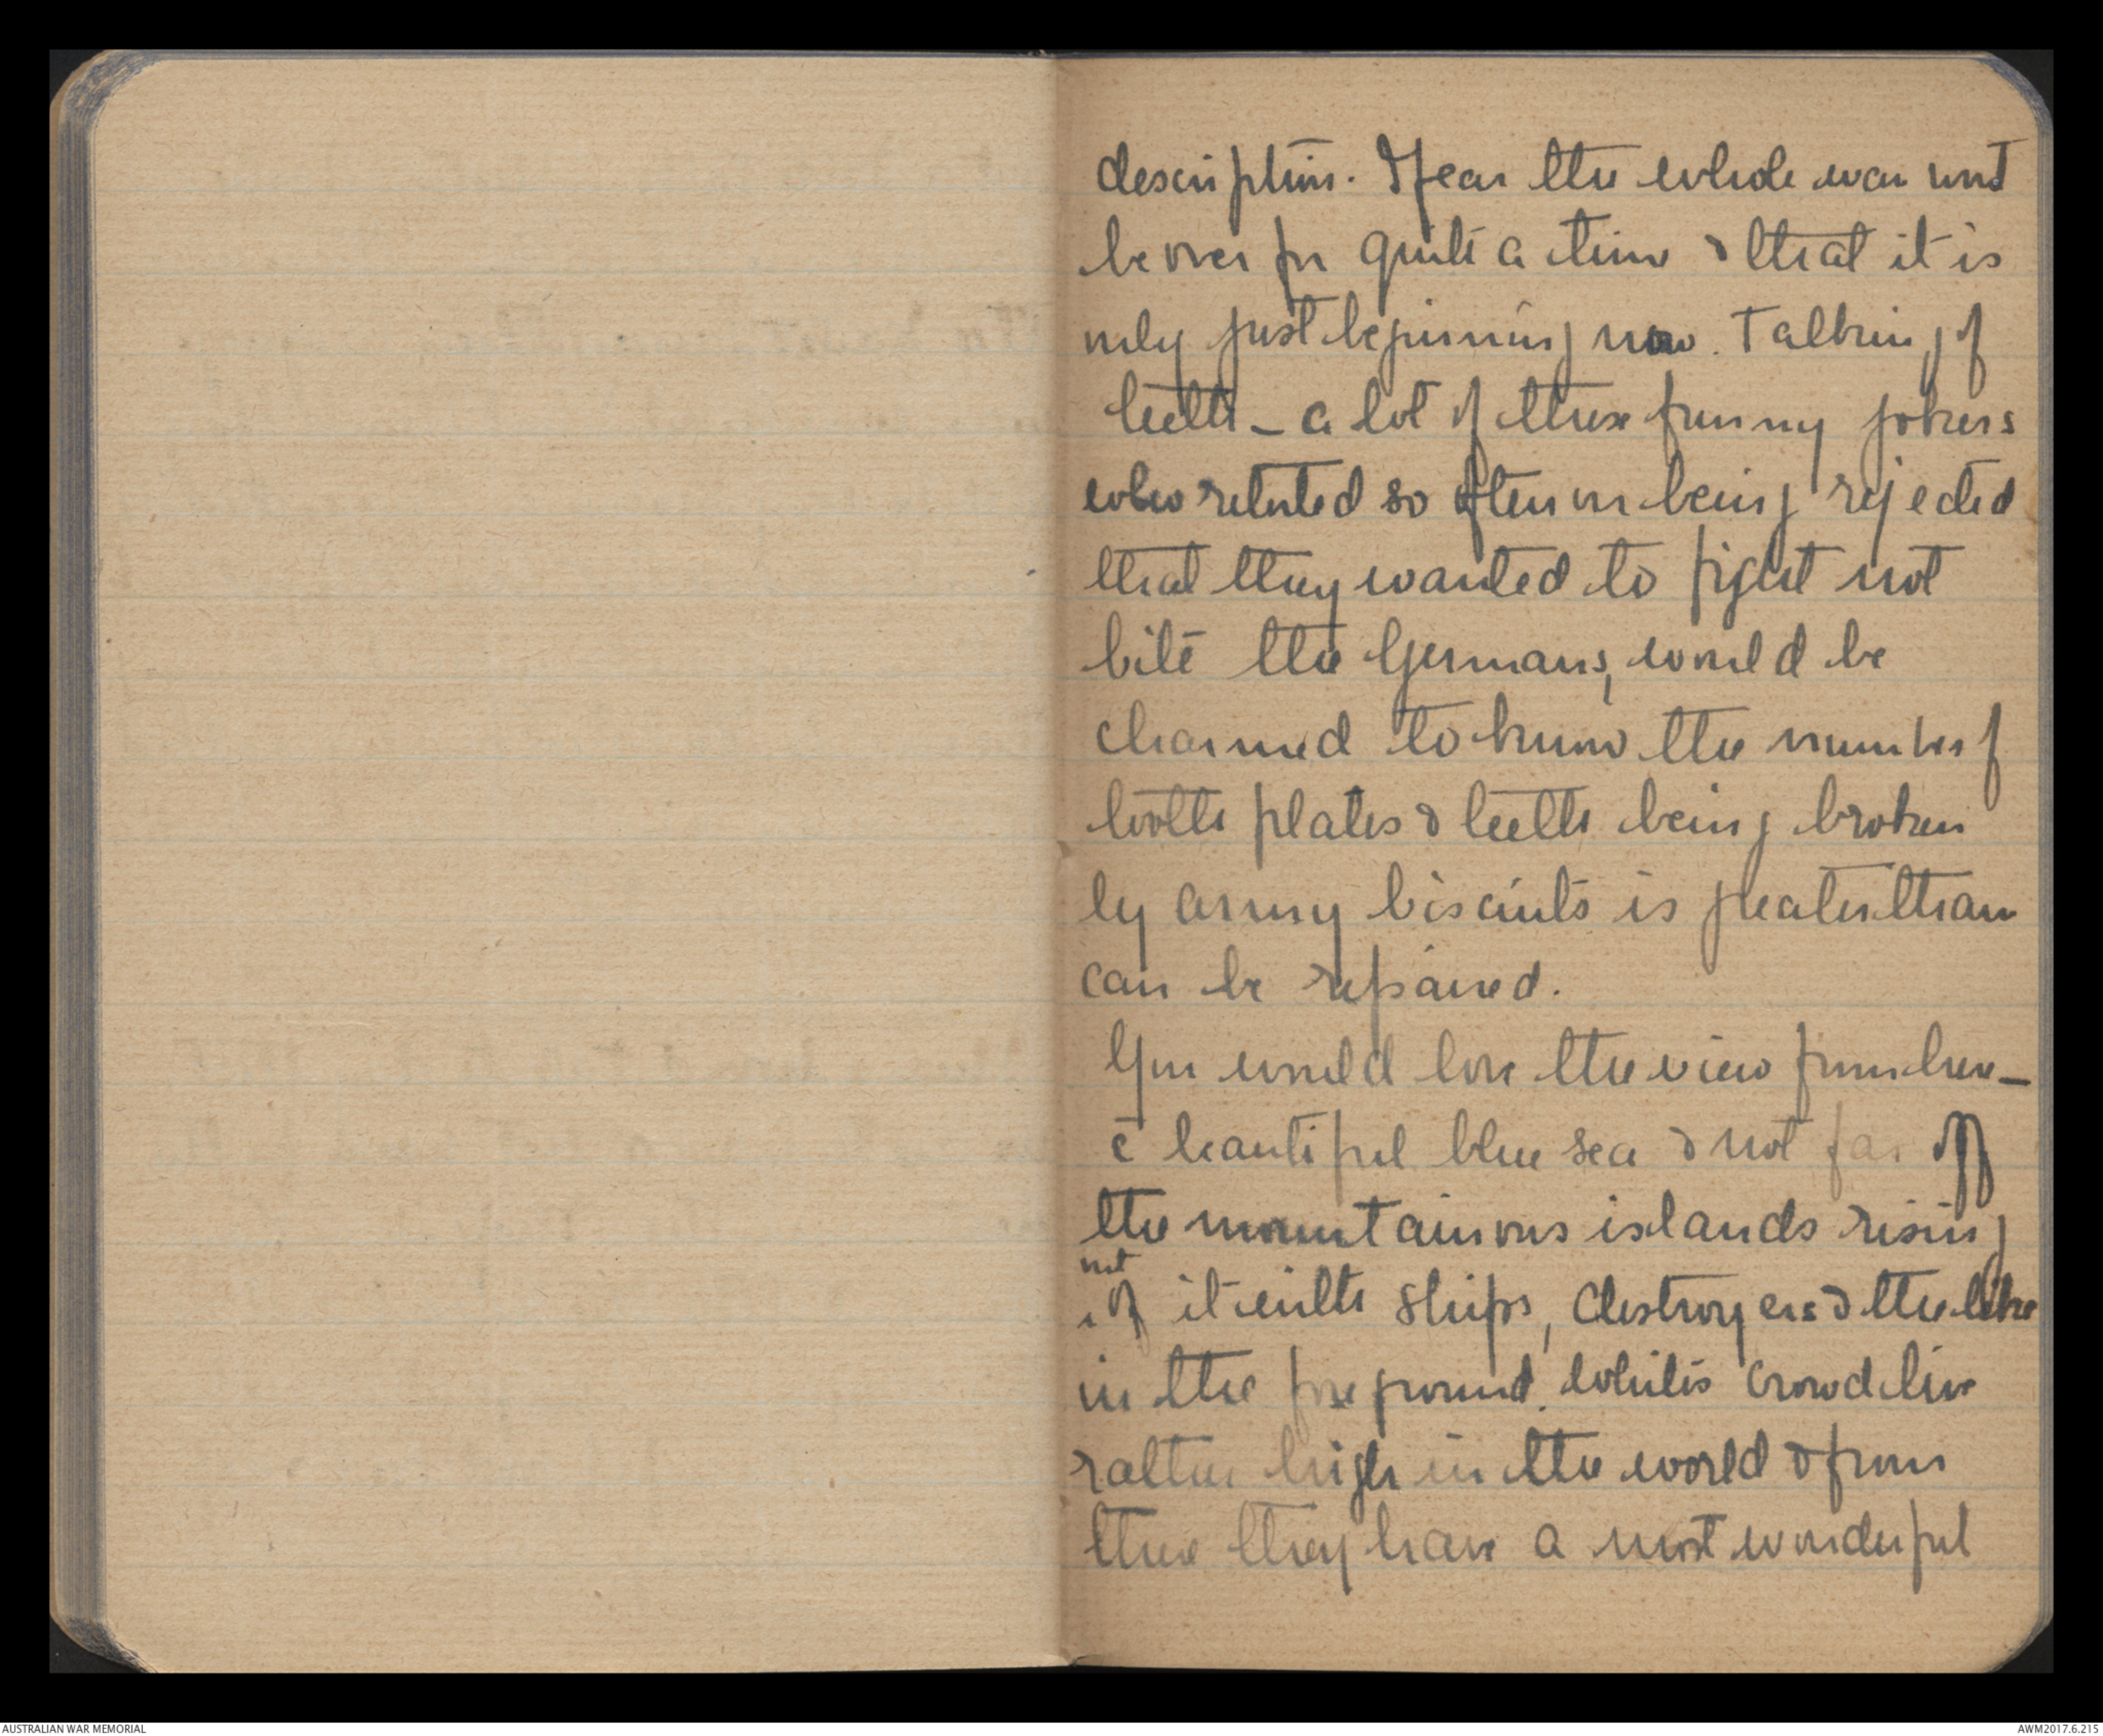 description. I fear the whole war wont
be over for quite a time & that it is
only just beginning now. Talking of
teeth – a lot of these funny jokers
who retorted so often on being rejected
that they wanted to fight not
bite the Germans, would be
charmed to know the number of
tooth plates & teeth being broken
by army biscuits is greater than
can be repaired.
You would love the view from here –
c̄ beautiful blue sea & not far off
the mountainous islands rising
out
of it with ships, destroyers & the like
in the foreground. Whitis crowd live
rather high in the world & from
there they have a most wonderful
AUSTRALIAN WAR MEMORIAL
AWM2017.6.215